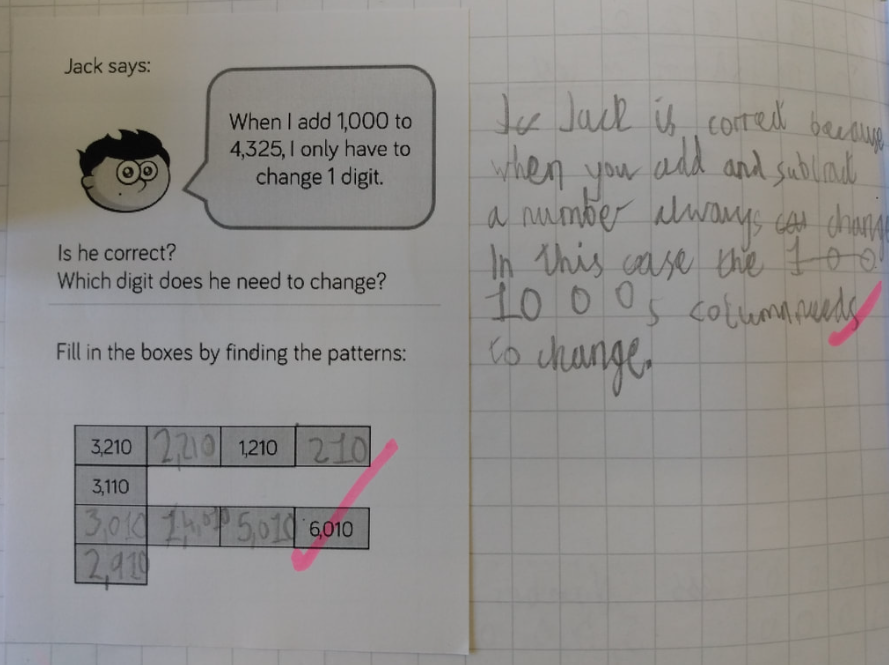 Jack says:
When I add 1,000 to
4,325, I only have to
change 1 digit.
Is he correct?
Which digit does he need to change?
Fill in the boxes by finding the patterns:
3,210 2,210 1,210 210
3,110
3,010 4,010 5,010 6,010
2,910
Jack is correct because
when you add and subtract
a number always chang
In this case the 100
1000s column needs
to change.